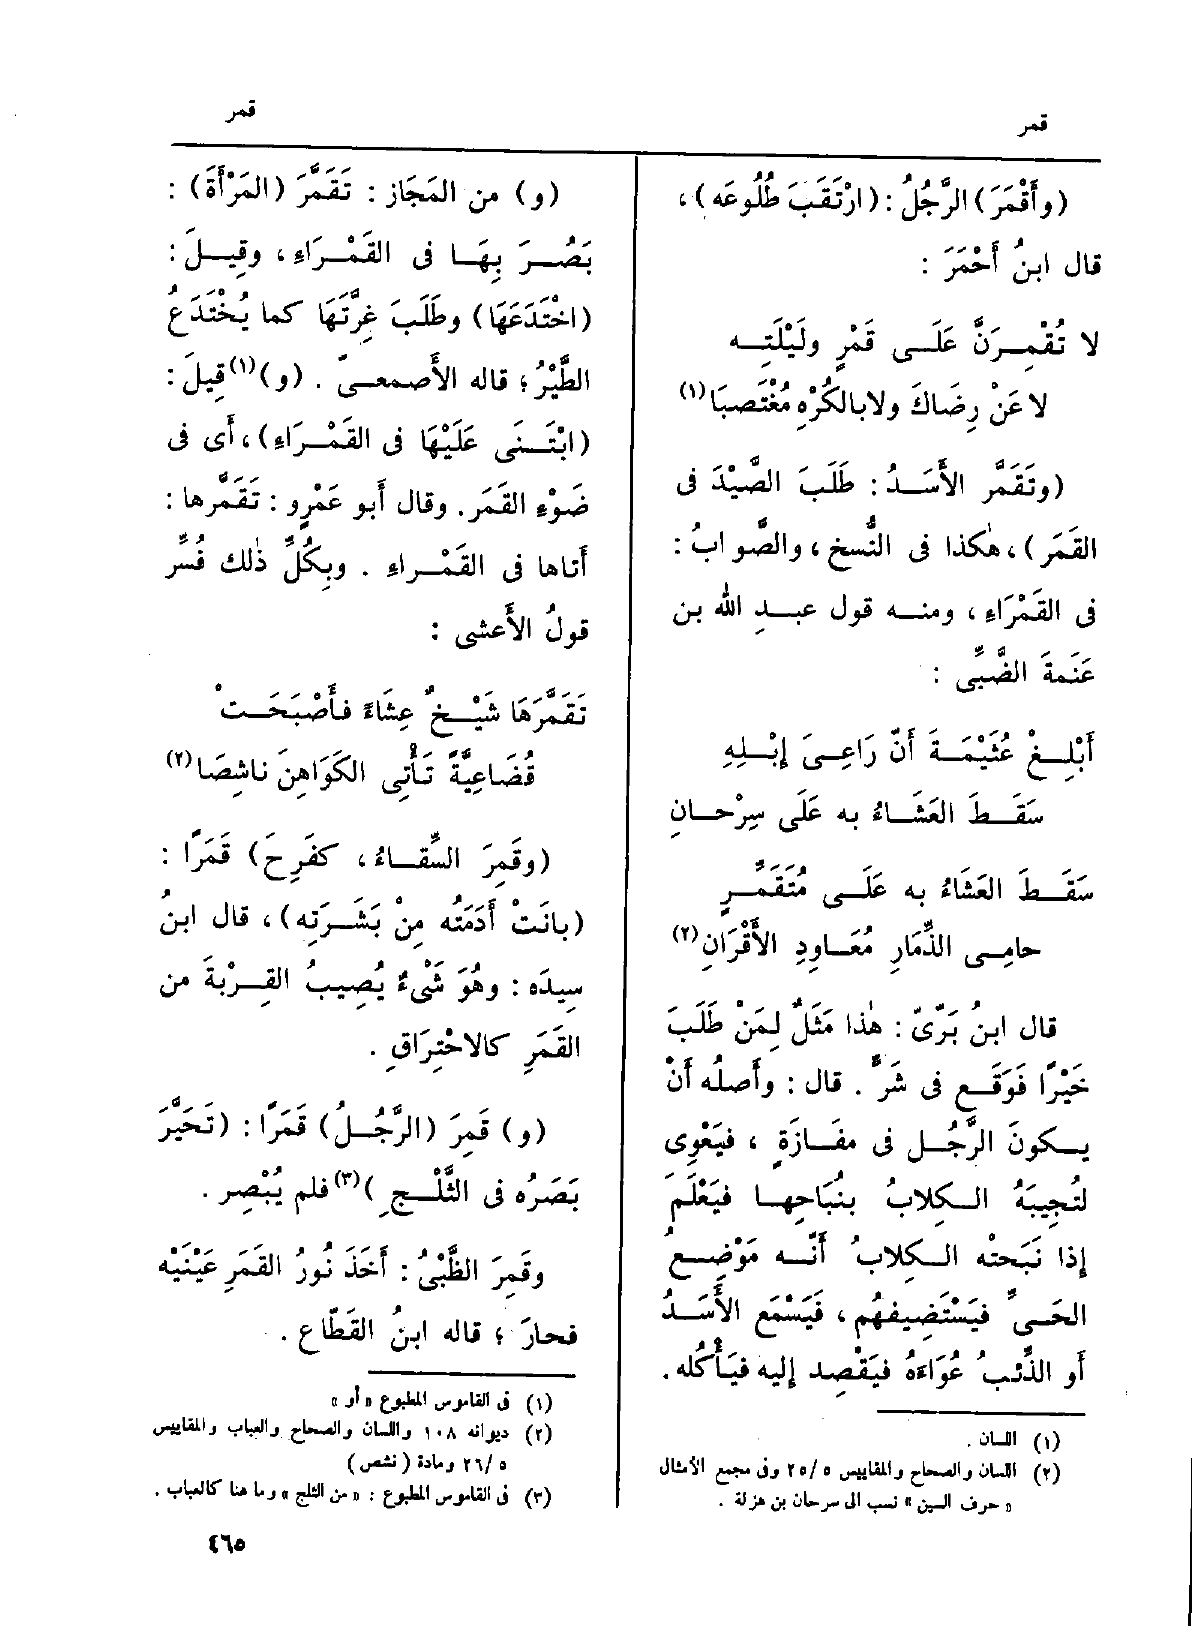 قمر
قمر
(وأَقْمَرَ) الرَّجُلُ : (ارْتَقَبَ طُلُوعَه) ،
قال ابنُ أَحْمَرَ :
لا تُقْمِرَنَّ عَلَى قَمْرٍ ولَيْلَتِه
لا عَنْ رِضَاكَ ولا بالكُرْهِ مُغْتَصِبَا (١)
(وتَقَمَّر الأَسَدُ : طَلَبَ الصَّيْدَ فى
القَمَر) ، هٰكذا فى النُّسخ ، والصَّوابُ :
فى القَمْرَاءِ ، ومنه قول عبدِ الله بن
عَنَمةَ الضَّبِّى :
أَبْلِغْ عُثَيْمَةَ أَنّ رَاعِىَ إِبْلِهِ
سَقَطَ العَشَاءُ به عَلَى سِرْحانِ
سَقَطَ العَشَاءُ به عَلَى مُتَقَمِّرٍ
حامِى الذِّمَارِ مُعَاودِ الأَقْرَانِ (٢)
قال ابنُ بَرِّىّ : هٰذا مَثَلٌ لِمَنْ طَلَبَ
خَيْرًا فَوَقَع فى شَرٍّ . قال : وأَصلُه أَنْ
يكونَ الرَّجُل فى مفَازَةٍ ، فيَعْوِى
لتُجِيبَهُ الكِلابُ بنُبَاحِها فيَعْلَمَ
إذا نَبَحتْه الكِلابُ أَنَّه مَوْضِعُ
الحَىِّ فيَسْتَضِيفهُم ، فَيَسْمَع الأَسَدُ
أَو الذِّئبُ عُوَاءَهُ فيَقْصِد إليه فيَأْكُله .
(١) اللسان .
(٢) اللسان والصحاح والمقاييس ٥/٢٥ وفى مجمع الأمثال
« حرف السين » نسب الى سرحان بن هزلة .
(و) من المَجَاز : تَقَمَّرَ (المَرْأَةَ) :
بَصُرَ بِهَا فى القَمْرَاءِ ، وقِيلَ :
(اخْتَدَعَهَا) وطَلَبَ غِرَّتَهَا كما يُخْتَدَعُ
الطَّيْرُ ؛ قاله الأَصمعىّ . (و) (١) قِيلَ :
(ابْتَنَى عَلَيْهَا فى القَمْرَاءِ) ، أَى فى
ضَوْءِ القَمَر . وقال أَبو عَمْرٍو : تَقَمَّرها :
أَتاها فى القَمْراء . وبِكُلِّ ذٰلك فُسِّر
قولُ الأَعشى :
تَقَمَّرَهَا شَيْخٌ عِشَاءً فأَصْبَحَتْ
قُضَاعِيَّةً تَأْتِى الكَوَاهِنَ ناشِصَا (٢)
(وقَمِرَ السِّقَاءُ ، كفَرِحَ) قَمَرًا :
(بانَتْ أَدَمَتُه مِنْ بَشَرَتِه) ، قال ابنُ
سِيدَه : وهُوَ شَىْءٌ يُصِيبُ القِرْبةَ من
القَمَرِ كالاحْتِرَاقِ .
(و) قَمِرَ (الرَّجُلُ) قَمَرًا : (تَحَيَّرَ
بَصَرُه فى الثَّلْجِ ) (٣) فلم يُبْصِر .
وقَمِرَ الظَّبْىُ : أَخَذَ نُورُ القَمَرِ عَيْنَيْه
فحارَ ؛ قاله ابنُ القَطَّاع .
(١) فى القاموس المطبوع « أو »
(٢) ديوانه ١٠٨ واللسان والصحاح والعباب والمقاييس
٥/٢٦ ومادة (نشص)
(٣) فى القاموس المطبوع : « من الثلج » وما هنا كالعباب .
٤٦٥